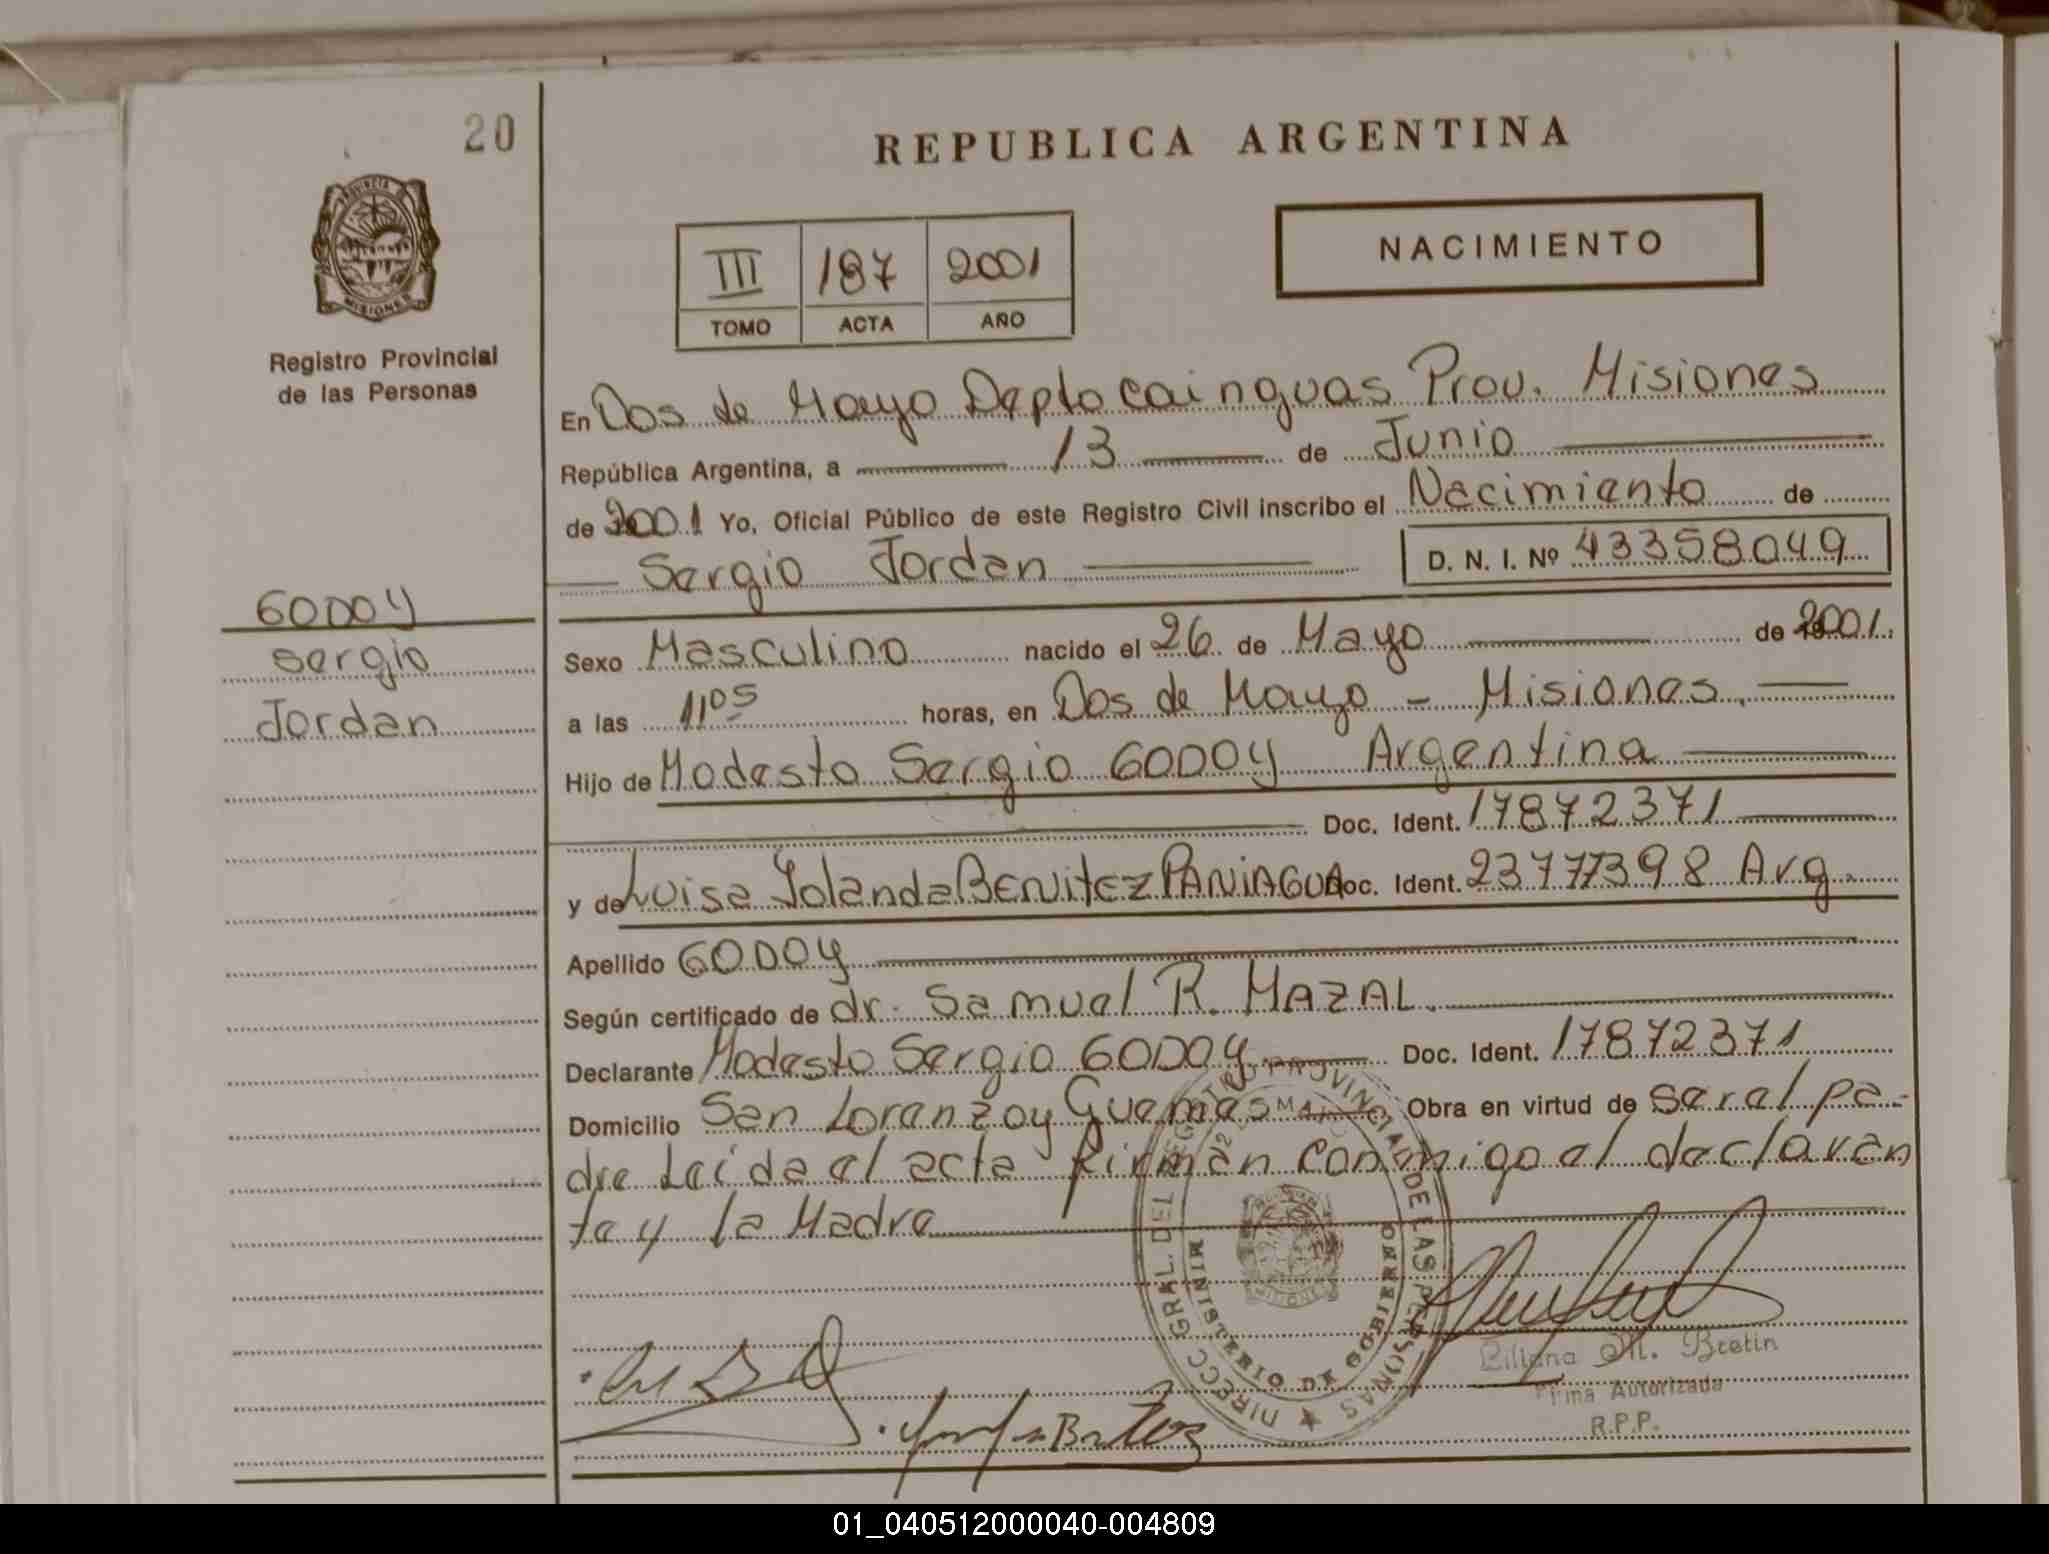 20
PROVINCIA DE
MISIONES
Registro Provincial
de las Personas
REPUBLICA ARGENTINA
III 187 2001
TOMO ACTA AÑO
NACIMIENTO
En Dos de Mayo Depto Cainguas Prov. Misiones
República Argentina, a 13 de Junio
de 2001 Yo, Oficial Público de este Registro Civil inscribo el Nacimiento de
Sergio Jordan D. N. I. Nº 43358049
GODOY
Sergio
Jordan
Sexo Masculino nacido el 26 de Mayo de 2001.
a las 11 05 horas, en Dos de Mayo - Misiones.
Hijo de Modesto Sergio GODOY Argentina
Doc. Ident. 17872371
y de Luisa Yolanda BENITEZ PANIAGUA Doc. Ident. 23777398 Arg.
Apellido GODOY
Según certificado de dr. Samuel R. MAZAL.
Declarante Modesto Sergio GODOY Doc. Ident. 17872371
Domicilio San Lorenzo y Guemes Obra en virtud de ser el pa-
dre Leída el acta firman conmigo el declaran
te y la Madre
DIRECC GRAL. DEL REGISTRO PROVINCIAL DE LAS PERSONAS
MINISTERIO DE GOBIERNO
MISIONES
Liliana M. Bretin
Firma Autorizada
R.P.P.
01_040512000040-004809